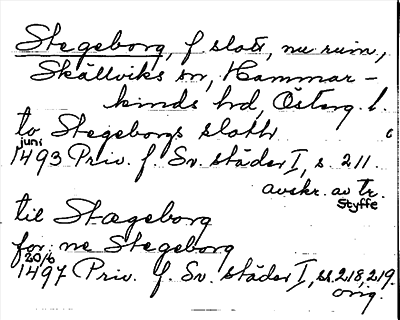 Stegeborg, f slott, nu ruin,
Skällviks sn, Hammar-
kinds hd, Österg. l.
to Stegeborgs slath
juni
1493 Priv. f. Sv. städer I, s. 211.
avskr. av tr.
Styffe
til Stægeborg
for:ne Stegeborg
20/6
1497 Priv. f. Sv. städer I, ss. 218, 219.
orig.